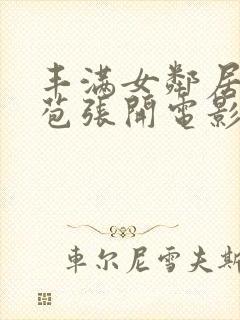 丰满女鄰居
苞張開電影
車尔尼雪夫斯